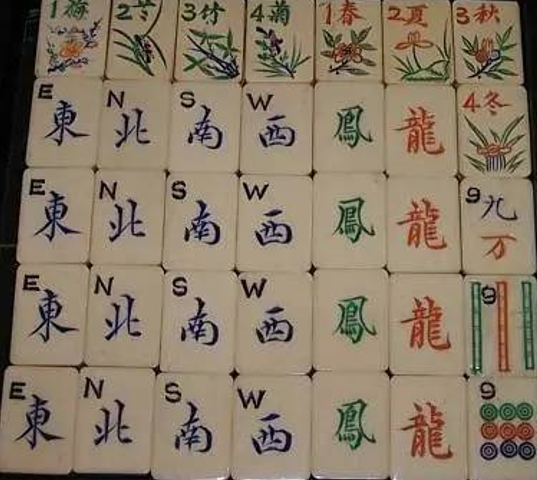 1梅 2 3竹 4菊 1春 2夏 3秋
E東 N北 S南 W西 鳳 龍 4冬
E東 N北 S南 W西 鳳 龍 9九万
E東 N北 S南 W西 鳳 龍 9
E東 N北 S南 W西 鳳 龍 9